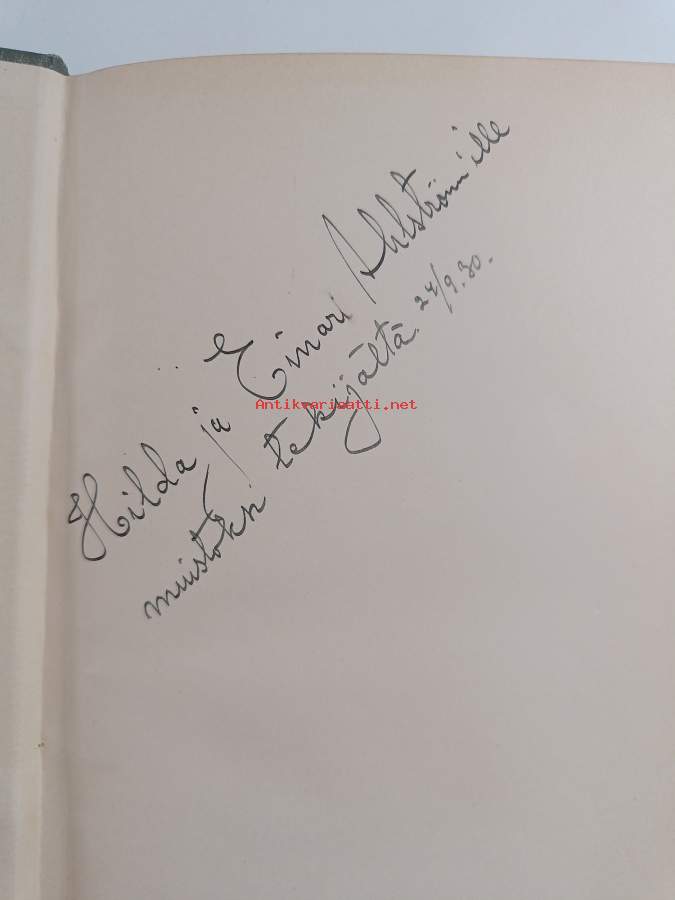 Hilda ja Einari Ahlström'ille
muistoksi tekijältä 24/9.30.
Antikvariaatti.net